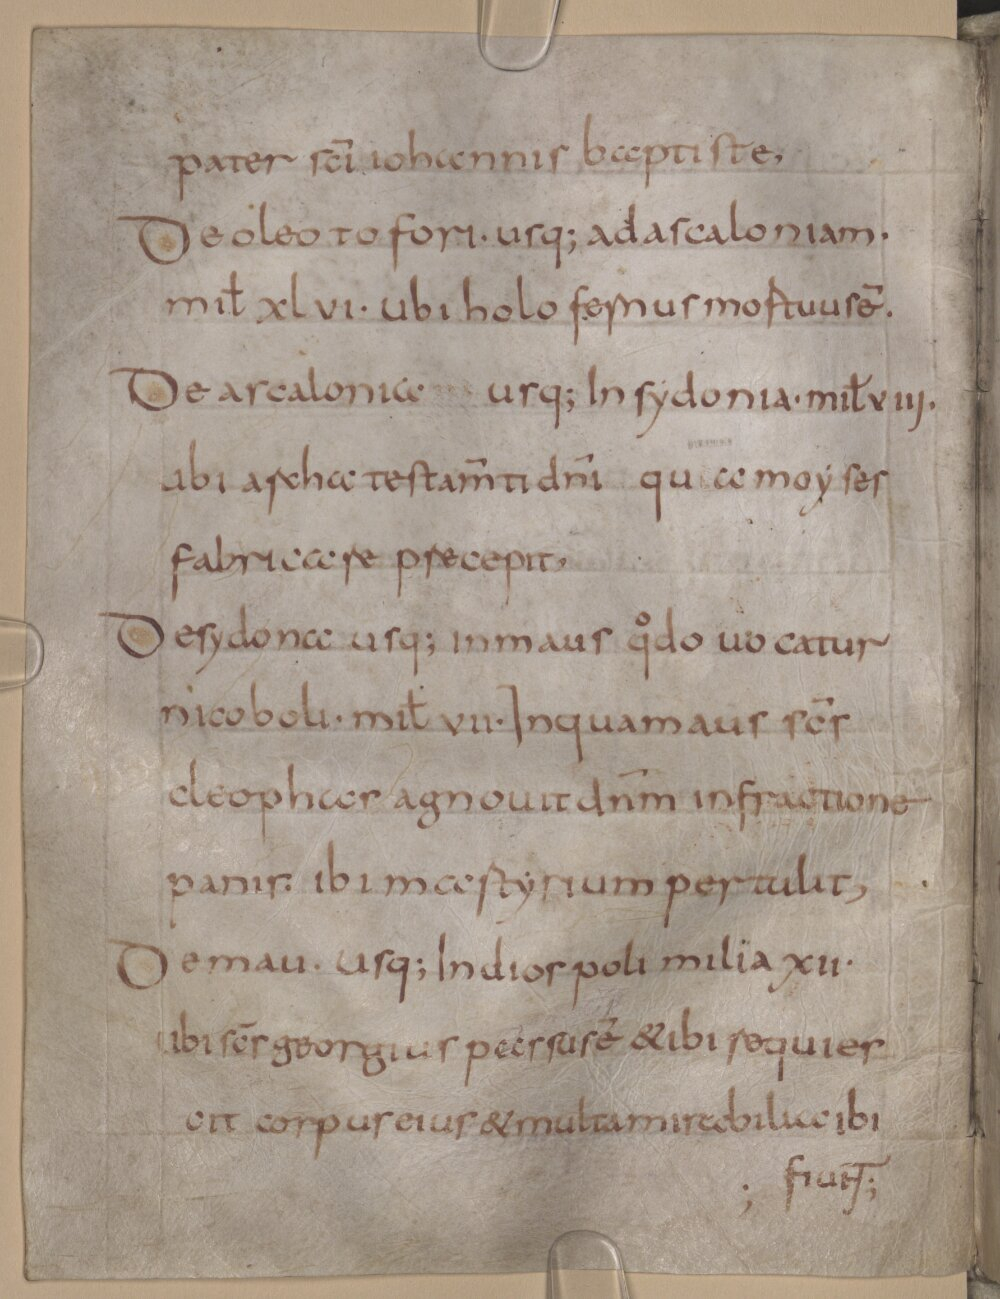 pater sc̄i iohannis baptiste,
De oleo to fori· usq; ad ascaloniam·
mił xlvi· ubi holofernus mortuus ē.
De ascalonia usq; In sydonia· mił viij.
ubi archa testam̄ti dn̄i qua moyses
fabricare precepit,
De sydona usq; in maus q°do uocatur
nicoboli· mił vii· In qua maus sc̄s
cleophas agnouit dn̄m in fractione
panis· ibi martyrium pertulit,
De mau· usq; In diospoli milia xii·
ibi sc̄s georgius passus ē & ibi requies
cit corpus eius & multa mirabilia ibi
; fiun̄t;